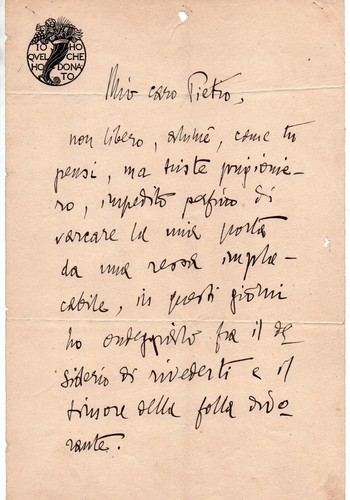 IO HO
QUEL CHE
HO DONA
TO
Mio caro Pietro,
non libero, ahimè, come tu
pensi, ma triste prigionie-
ro, impedito perfino di
varcare la mia porta
da una ressa impla-
cabile, in questi giorni
ho ondeggiato fra il de
siderio di rivederti e il
timore della folla divo
rante.